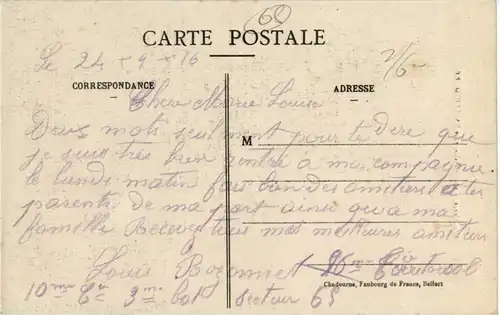 69
CARTE POSTALE
Le 24 × 9 × 16
2/6
CORRESPONDANCE
ADRESSE
Chere Marie Louise
M
Deux mots seulment pour te dire que
je suis tres bien rentré a ma compagnie
le lundi matin fais bien des amitiers a tes
parents de ma part ainsi qu'a ma
famille Recevez tous mes meilleures amitiers
Louis
10me Cie 3me bat secteur 65
Chadourne, Faubourg de France, Belfort